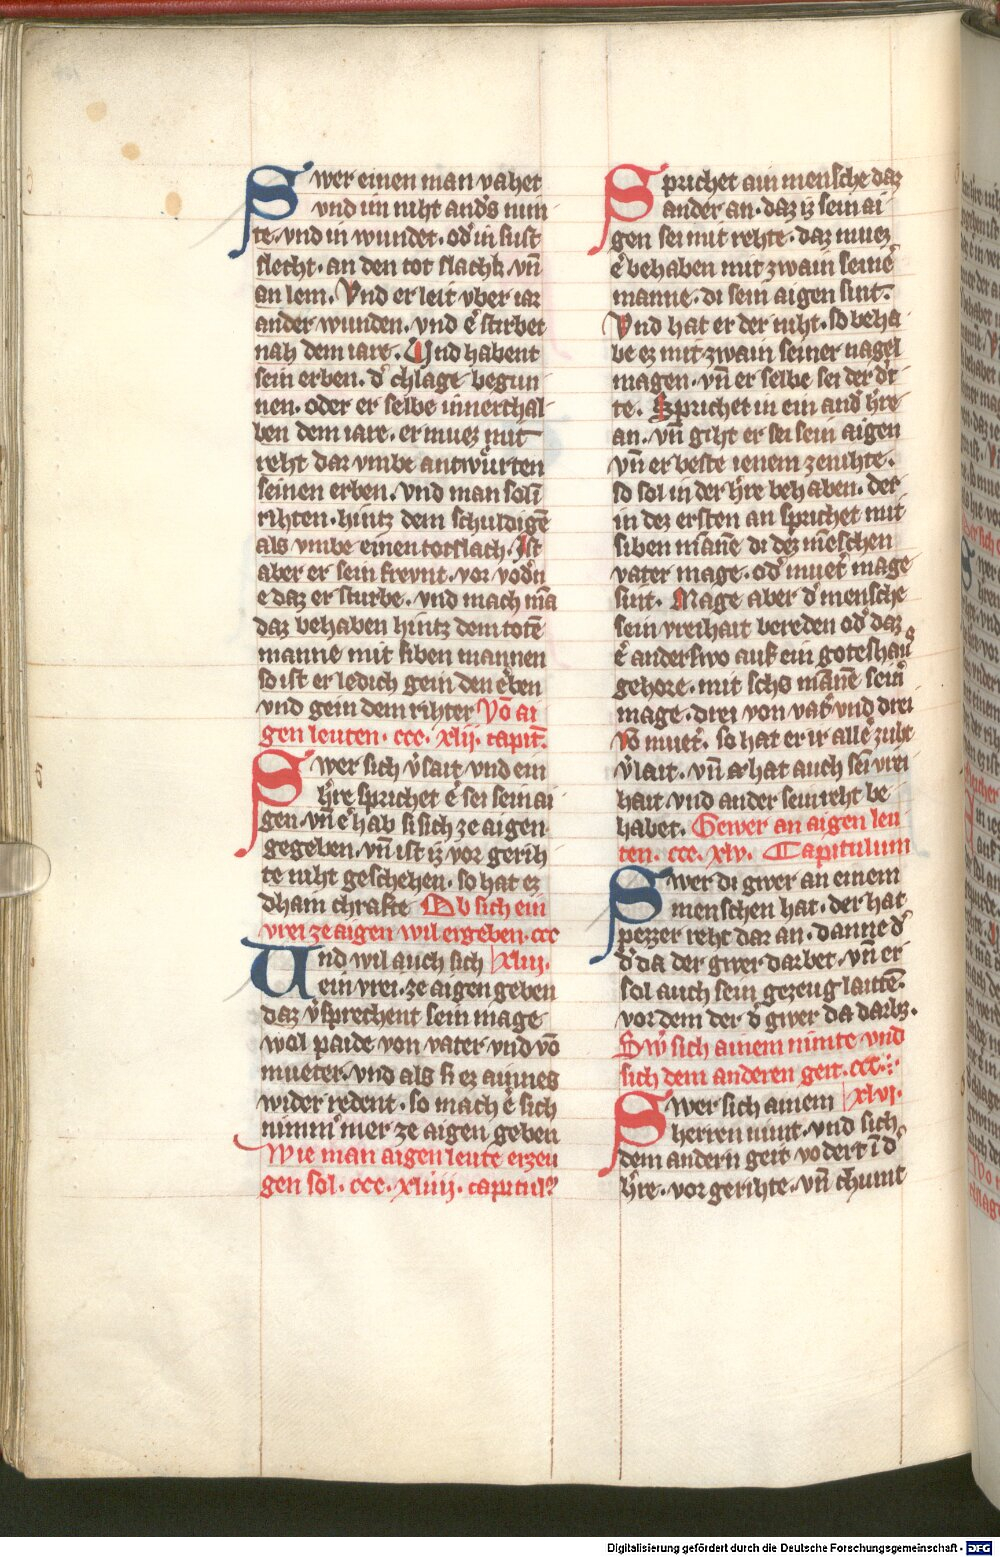 Swer einen man vahet
vnd im niht anders nim
te. vnd in wundet. od' in sust
slecht. an den tot slach. vn̄
an lem. Vnd er leit vber iar
ander wunden. vnd e' stirbet
nah dem iare. Vnd habent
sein erben. d' chlage begun
nen. oder er selbe innerthal
ben dem iare. er muez mit
reht dar vmbe antwürten
seinen erben. vnd man sol ī
rihten. hintz dem schuldigē
als vmbe einen totslach. Ist
aber er sein frevnt. vor vod'n
e daz er sturbe. vnd mach mā
daz behaben hintz dem totē
manne mit siben mannen
so ist er ledich gein den e'ben
vnd gein dem rihter Võ ai
gen leuten. ccc. xlii. capit̄.
Swer sich v'sait vnd ein
h're sprichet e' sei sein ai
gen. vn̄ e' hab si sich ze aigen
gegeben. vn̄ ist iz vor gerih
te niht geschehen. so hat ez
dham chrafte Ob sich ein
vrei ze aigen wil ergeben. ccc
Und wil auch sich xliii.
ein vrei. ze aigen geben
daz v'sprechent sein mage
wol paide von vater vnd võ
mueter. vnd als si ez aines
wider redent. so mach e' sich
nimm'mer ze aigen geben
Wie man aigen leute erzeu
gen sol. ccc. xliiii. capitul'
Sprichet ain mensche daz
ander an. daz iz sein ai
gen sei mit rehte. daz muez
e' behaben mit zwain seine'
manne. di sein aigen sint.
Vnd hat er der niht. so beha
be ez mit zwain seiner nagel
magen. vn̄ er selbe sei der d'i
te. Sprichet in ein and' h're
an. vn̄ giht er sei sein aigen
vn̄ er beste ienem ze nihte.
so sol in der h're behaben. der
in dez ersten an sprichet mit
siben mānē di dez mēschen
vater mage. od' muet' mage
sint. Mage aber d' mensche
sein vreihait bereden od' daz
e' anderswo auf ein goteshaus
gehore. mit schs mānē sein'
mage. drei von vat' vnd drei
võ muet'. so hat er ir alle' zuht
v'lait. vn̄ er hat auch sei vrei
hait vnd ander sein reht be
habet. Gewer an aigen leu
ten. ccc. xlv. Capitulum
Swer di gwer an einem
menschen hat. der hat
pezzer reht dar an. danne d'
d' da der gwer darbet. vn̄ er
sol auch sein gezeug lautē.
vor dem der d' gwer da darbz.
Sw' sich ainem nimte vnd
sich dem anderen geit. ccc.
Swer sich ainem xlvi.
herren nimt. vnd sich
dem andern geit vodert ī d'
h're. vor gerihte. vn̄ chumt
Digitalisierung gefördert durch die Deutsche Forschungsgemeinschaft - DFG